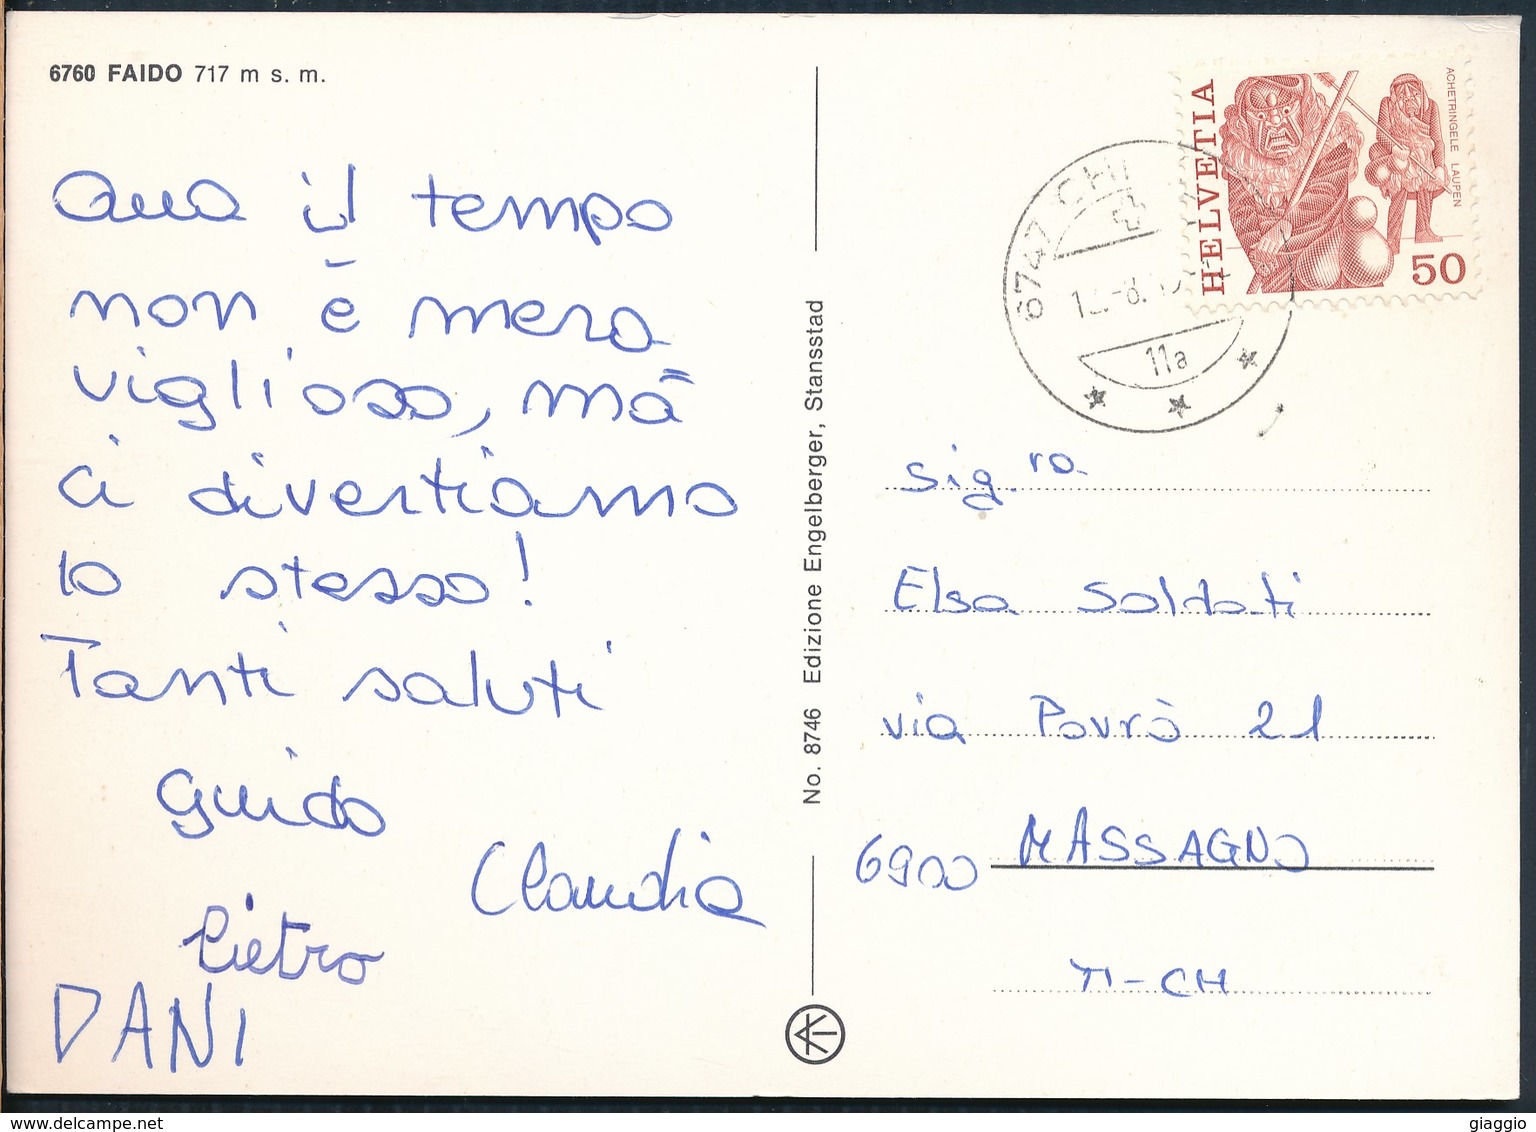 6760 FAIDO 717 m s. m.
Qua il tempo
non è mera
viglioso, mā
ci divertiamo
lo stesso!
Tanti saluti
Guido
Claudia
Pietro
DANI
No. 8746 Edizione Engelberger, Stansstad
HELVETIA
ACHETRINGELE LAUPEN
50
6747 CHI
11a
Sig.ra
Elsa Soldati
via Povrò 21
6900 MASSAGNO
TI-CH
www.delcampe.net
giaggio